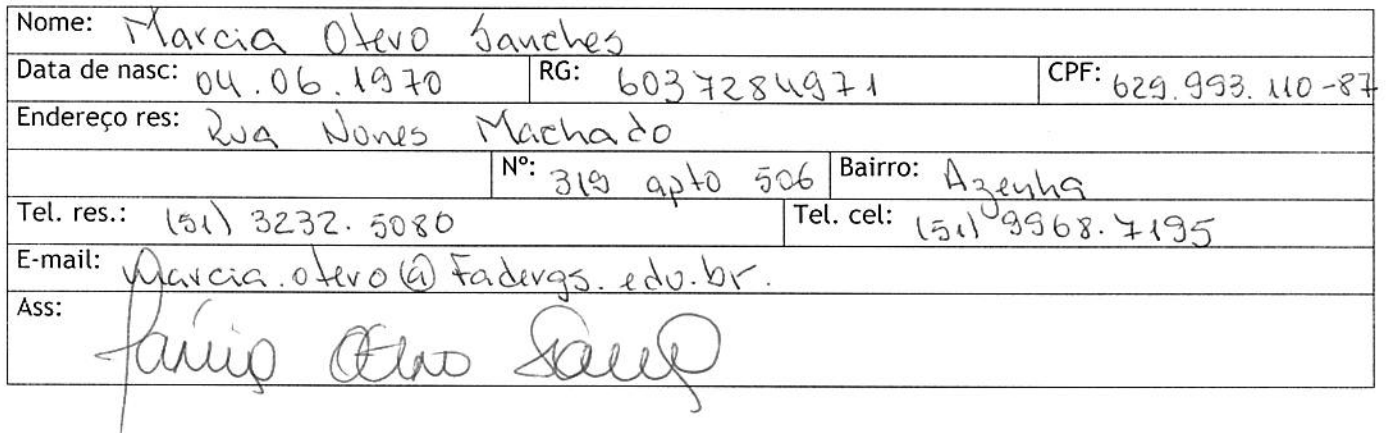 Nome: Marcia Otero Sanches
Data de nasc: 04.06.1970 RG: 6037284971 CPF: 629.993.110-87
Endereço res: Rua Nunes Machado
Nº: 319 apto 506 Bairro: Azenha
Tel. res.: (51) 3232.5080 Tel. cel: (51) 9968.7195
E-mail: Marcia.otero@Fadergs.edu.br.
Ass: Marcia Otero Sanches